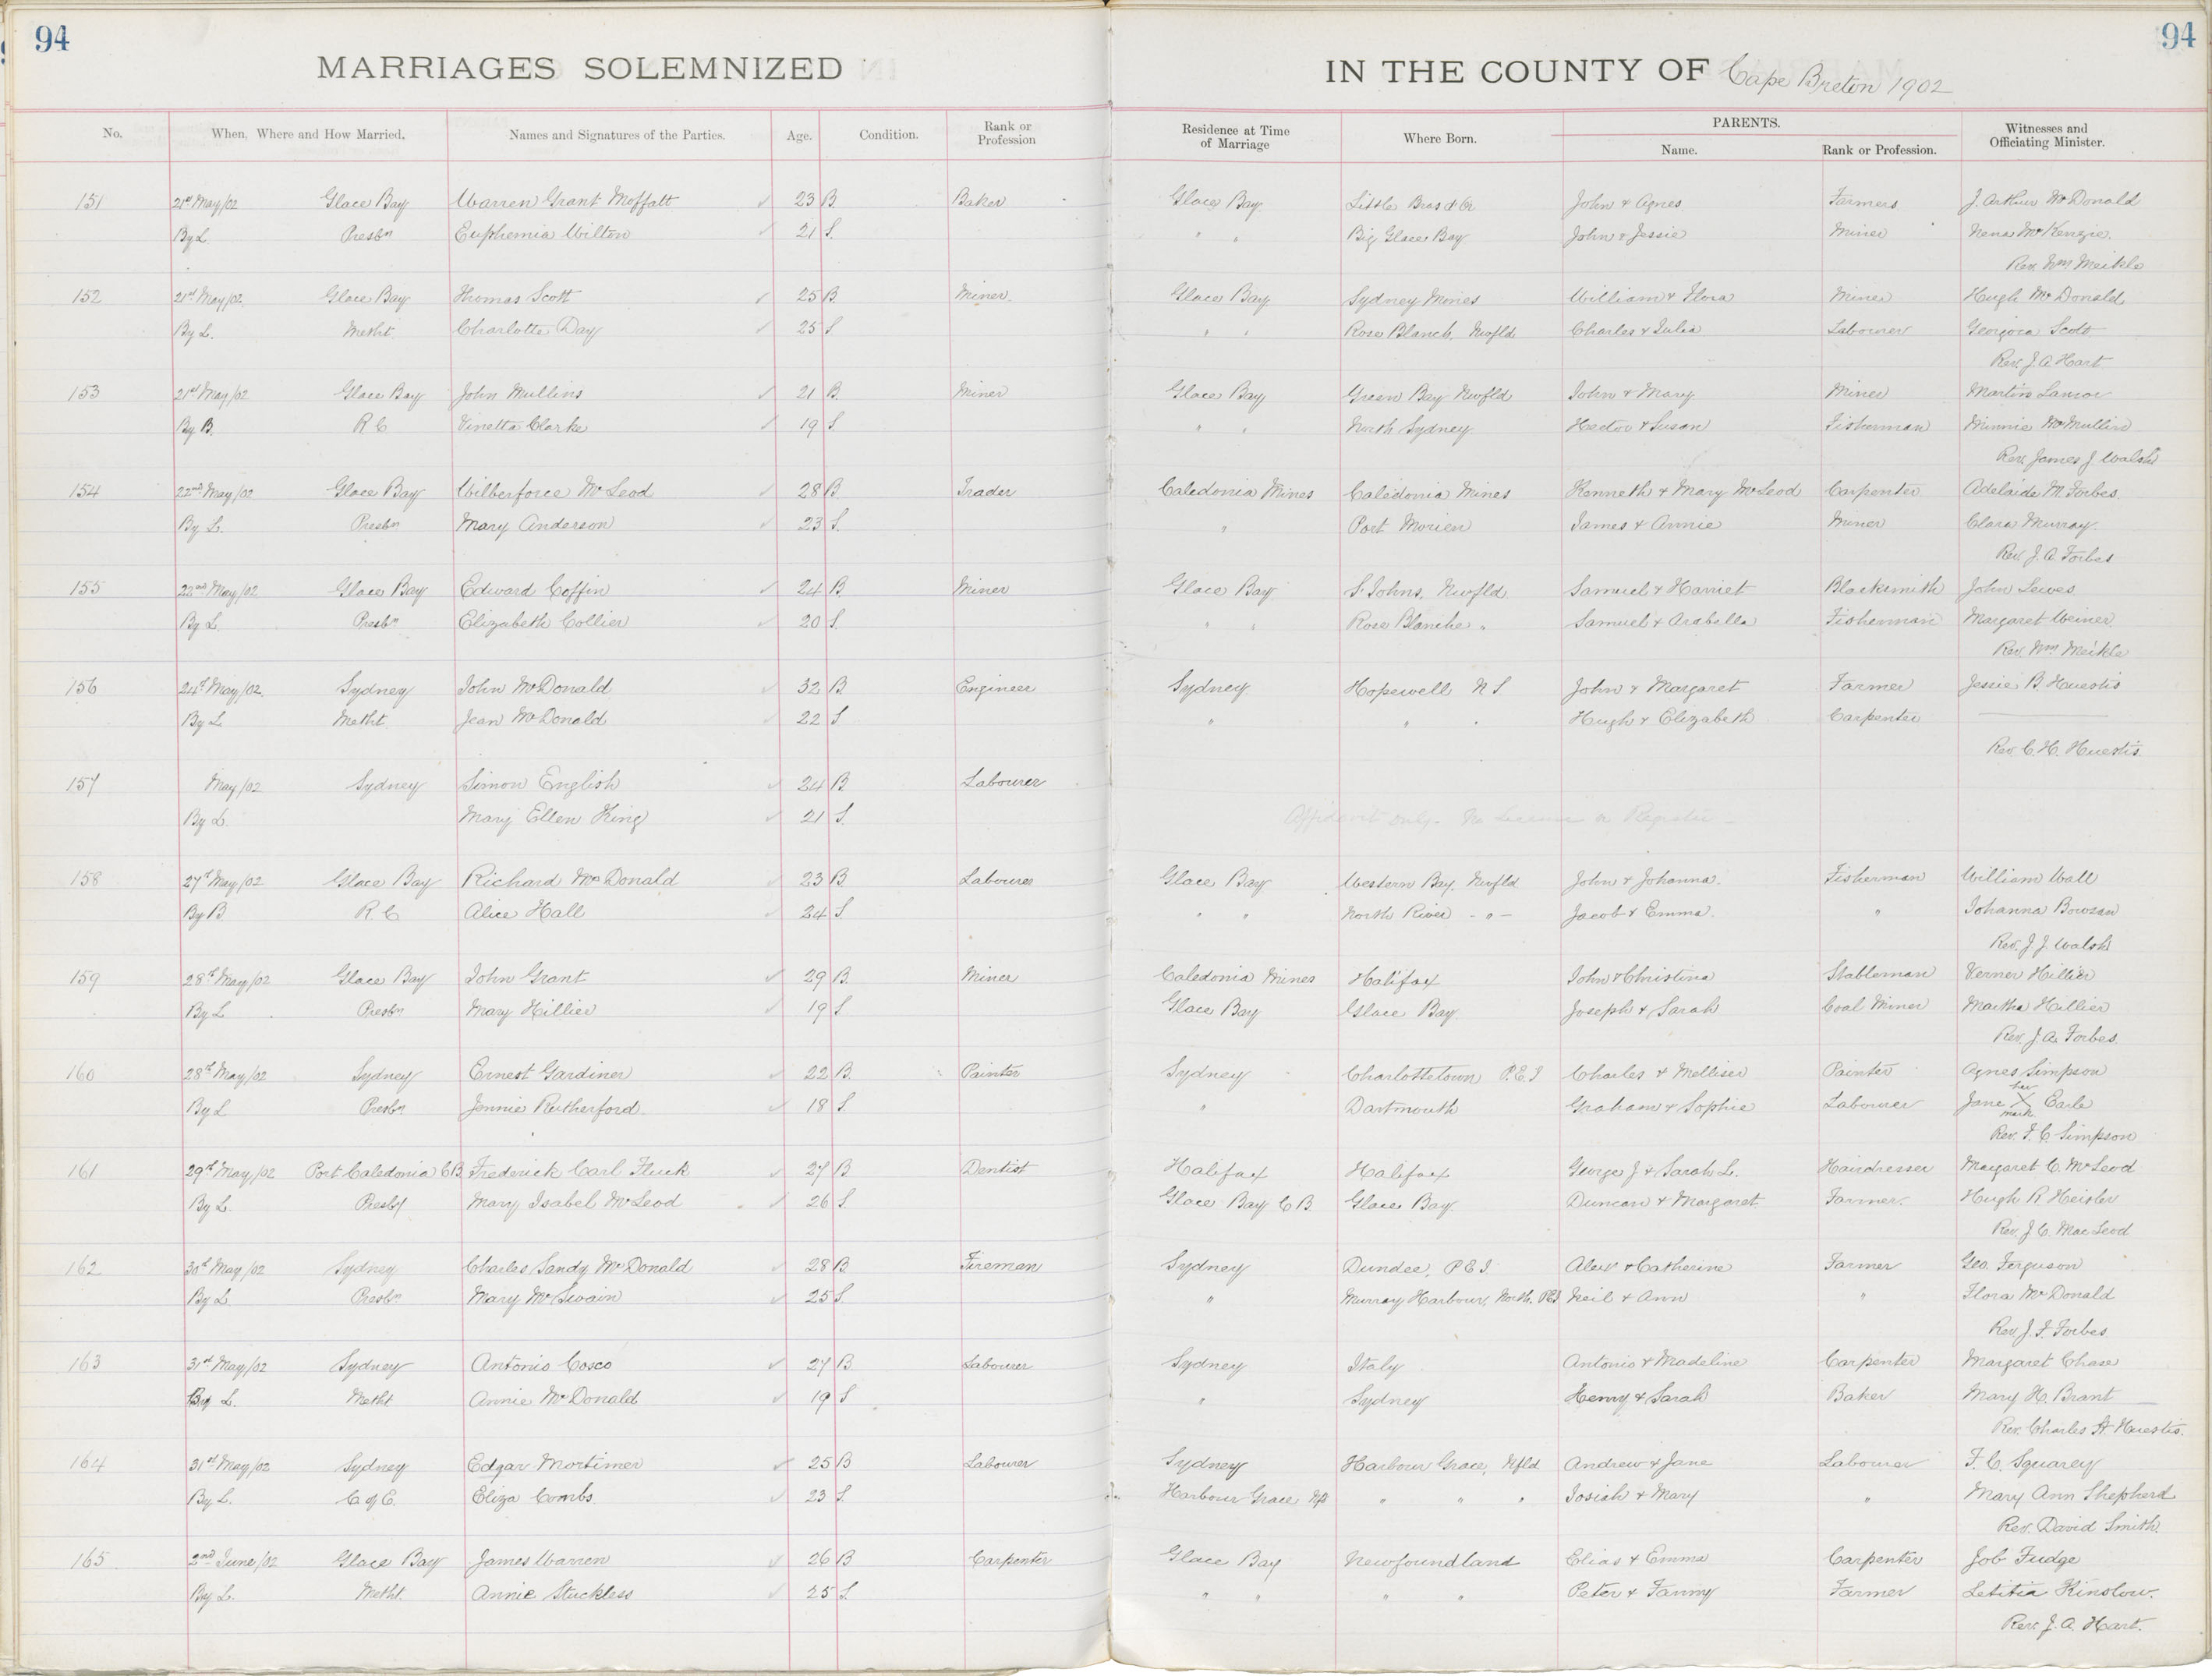 94 94
MARRIAGES SOLEMNIZED IN THE COUNTY OF Cape Breton 1902
No. When, Where and How Married. Names and Signatures of the Parties. Age. Condition. Rank or Profession Residence at Time of Marriage Where Born. PARENTS. Name. Rank or Profession. Witnesses and Officiating Minister.
151 21st May/02 Glace Bay Warren Grant Moffatt 23 B. Baker Glace Bay Little Bras d'Or John & Agnes Farmers J. Arthur McDonald
By L. Presbn Euphemia Wilton 21 S. " " Big Glace Bay John & Jessie Miner Nena McKenzie.
Rev. Wm. Meikle
152 21st May/02 Glace Bay Thomas Scott 25 B. Miner. Glace Bay Sydney Mines William & Flora Miner Hugh McDonald
By L. Metht. Charlotte Day 25 S " " Rose Blanch, Nwfld Charles & Julia Labourer Georgina Scott
Rev. J. A. Hart
153 21st May/02 Glace Bay John Mullins 21 B. Miner Glace Bay Green Bay Nwfld John & Mary Miner Martin
By B. R C Vinetta Clarke 19 S. " " North Sydney Hector & Susan Fisherman Minnie McMullin
Rev. James J. Walsh
154 22nd May/02 Glace Bay Wilberforce McLeod 28 B. Trader Caledonia Mines Caledonia Mines Kenneth & Mary McLeod Carpenter Adelaide M. Forbes
By L. Presbn Mary Anderson 23 S. " Port Morien James & Annie Miner Clara Murray.
Rev. J. A. Forbes
155 22nd May/02 Glace Bay Edward Coffin 24 B Miner Glace Bay St Johns, Nwfld Samuel & Harriet Blacksmith John Lewes
By L. Presbn Elizabeth Collier 20 S. " " Rose Blanche " Samuel & Arabella Fisherman Margaret Weiner
Rev. Wm. Meikle
156 24th May/02. Sydney John McDonald 32 B. Engineer Sydney Hopewell N S John & Margaret Farmer Jessie B. Huestis
By L Metht. Jean McDonald 22 S " " " Hugh & Elizabeth Carpenter
Rev. C. H. Huestis.
157 May/02 Sydney Simon English 24 B Labourer
By L. Mary Ellen King 21 S. Affidavit only. No License or Register
158 27th May/02 Glace Bay Richard McDonald 23 B. Labourer Glace Bay Western Bay, Nwfld John & Johanna. Fisherman William Wall
By B R. C Alice Hall 24 S. " " North River - " - Jacob & Emma. " Johanna Bowsan
Rev. J. J. Walsh
159 28th May/02 Glace Bay John Grant 29 B. Miner Caledonia Mines Halifax John & Christina Stableman Verner Hillier
By L Presbn Mary Hillier 19 S. Glace Bay Glace Bay Joseph & Sarah Coal Miner Martha Hillier
Rev. J. A. Forbes.
160 28th May/02 Sydney Ernest Gardiner 22 B. Painter Sydney Charlottetown P.E.I Charles & Mellisee Painter Agnes Simpson
By L Presbn Jennie Rutherford 18 S. " Dartmouth Graham & Sophie Labourer Jane her X mark Earle
Rev. F. C. Simpson
161 29th May/02 Port Caledonia C.B. Frederick Carl Fluck 27 B Dentist Halifax Halifax George J & Sarah L. Hairdresser Margaret C. McLeod
By L. Presby Mary Isabel McLeod 26 S. Glace Bay C B. Glace Bay Duncan & Margaret Farmer. Hugh R. Heisler
Rev. J. C. MacLeod
162 30th May/02 Sydney Charles Sandy McDonald 28 B. Fireman Sydney Dundee, P E I. Alex & Catherine Farmer Geo. Ferguson
By L Presbn Mary McSwain 25 S. " Murray Harbour, North, PEI Neil & Ann " Flora McDonald
Rev. J. F. Forbes
163 31st May/02 Sydney Antonio Cosco 27 B Labourer Sydney Italy Antonio & Madeline Carpenter Margaret Chase
By L. Metht Annie McDonald 19 S " Sydney Henry & Sarah Baker Mary H. Brant
Rev. Charles H. Huestis.
164 31st May/02 Sydney Edgar Mortimer 25 B Labourer Sydney Harbour Grace, Nfld Andrew & Jane Labourer F. C. Squarey
By L. C. of E. Eliza Combs 23 S. Harbour Grace Nfld " " " Josiah & Mary " Mary Ann Shepherd
Rev. David Smith.
165 2nd June/02 Glace Bay James Warren 26 B Carpenter Glace Bay Newfoundland Elias & Emma Carpenter Job Fudge
By L. Metht. Annie Stuckless 25 S. " " " " Peter & Fanny Farmer Letitia Kinslow.
Rev. J. A. Hart.